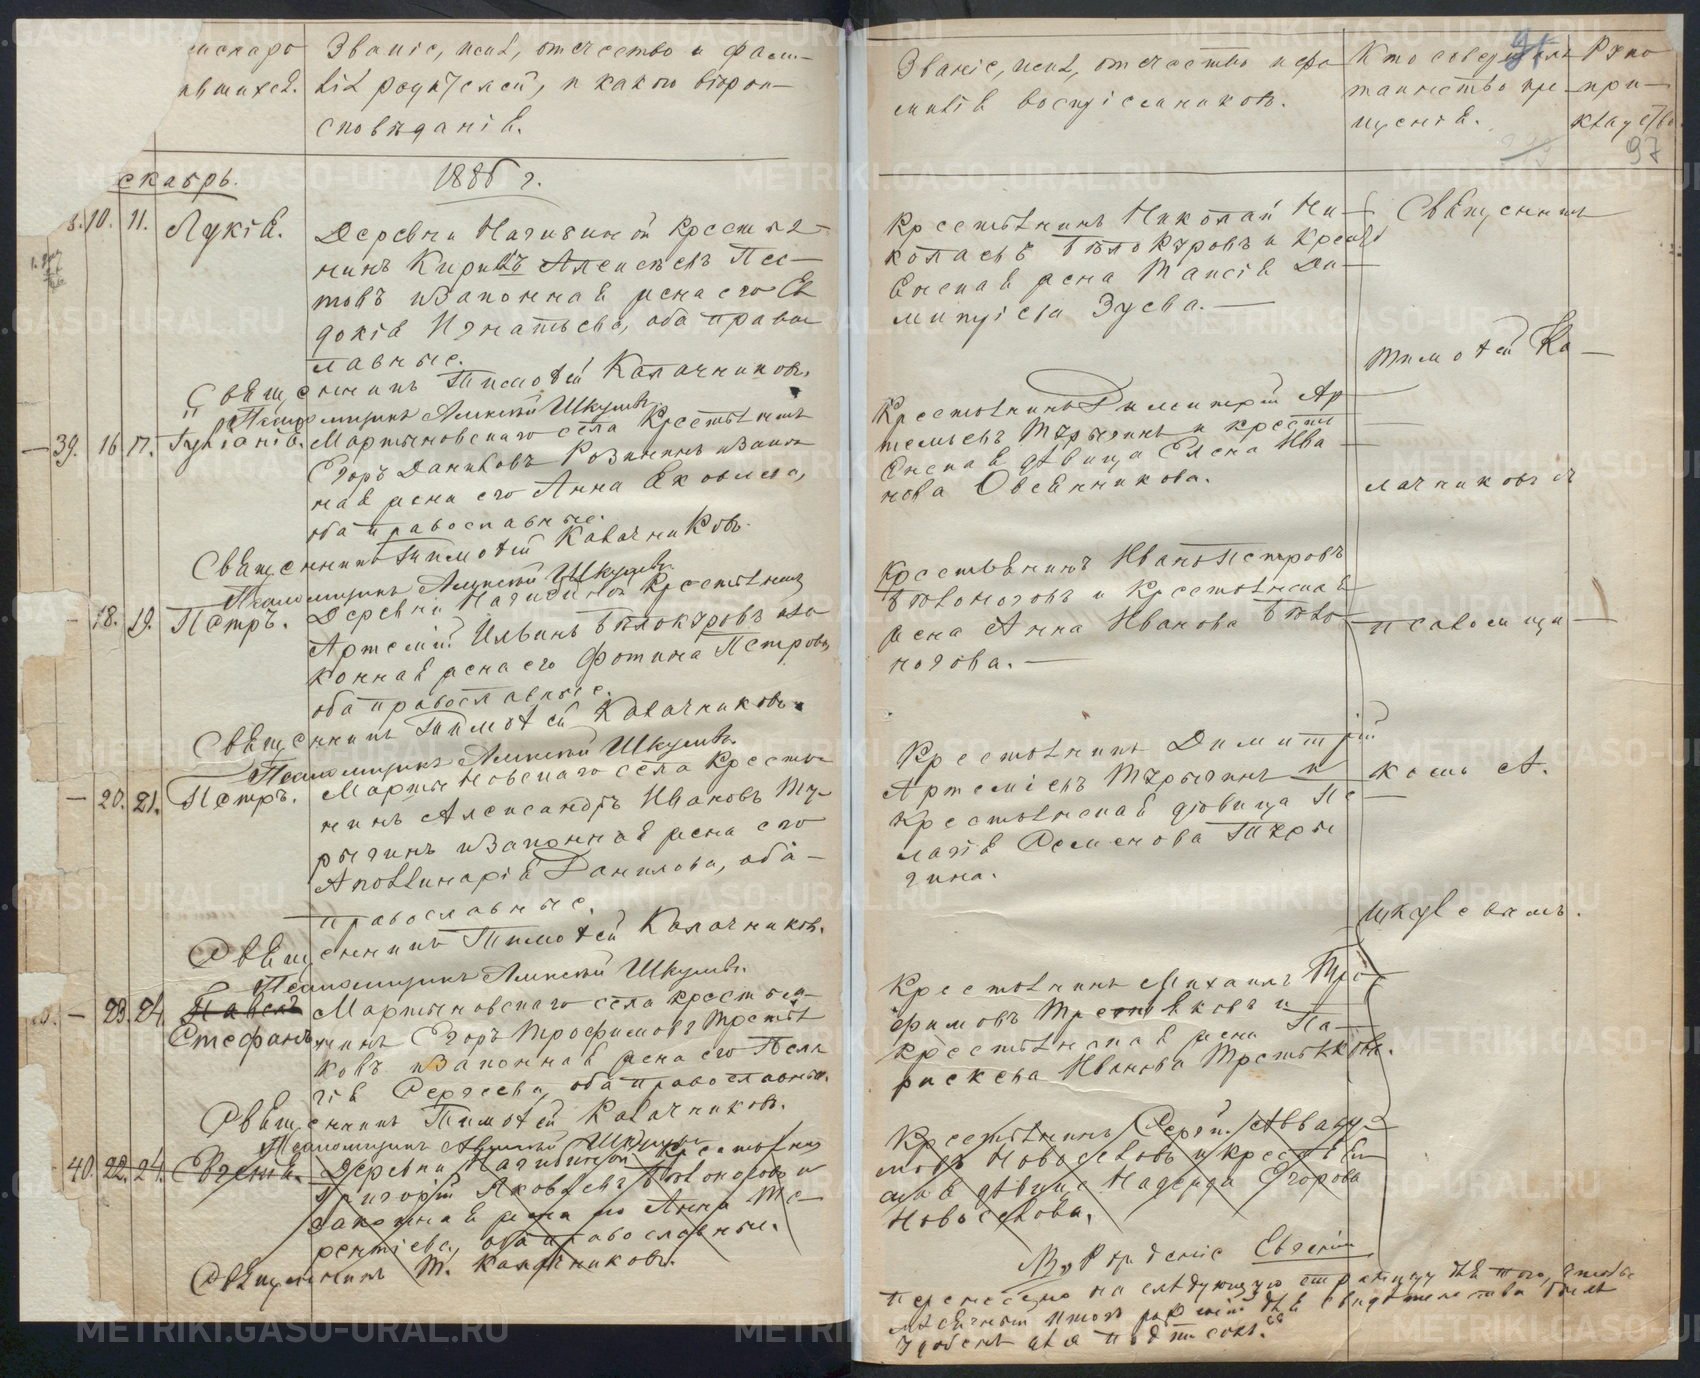 Званіе, имя, отчество и фами-
лія родителей, и какого вѣрои-
сповѣданія.
екабрь.
1886 г.
8. 10. 11. Лукія.
Деревни Начивиной крестья-
нинъ Кириллъ Алексѣевъ Пес-
товъ и законная жена его Ев
докія Игнатьева, оба право
славные.
Священникъ Тимофей Калачниковъ.
Псаломщикъ Алексѣй Шкулевъ.
39. 16 17. Іуліанія. Мартыновскаго села крестьянинъ
Егоръ Даниловъ и закон
ная жена его Анна Яковлева,
оба православные.
Священникъ Тимофей Калачниковъ.
Псаломщикъ Алексѣй Шкулевъ.
18. 19. Петръ. Деревни Начивиной крестьянинъ
Артемій Ильинъ Бѣлокуровъ и за
конная жена его Фотина Петрова
оба православные.
Священникъ Тимофей Калачниковъ.
Псаломщикъ Алексѣй Шкулевъ.
20. 21. Петръ. Мартыновскаго села кресть
нинъ Александръ Ивановъ Ту-
рыгинъ и законная жена его
Аполлинарія Данилова, оба
православные.
Священникъ Тимофей Калачниковъ.
Псаломщикъ Алексѣй Шкулевъ.
23. 24. Павелъ Мартыновскаго села крестья-
Стефанъ нинъ Егоръ Трофимовъ Третья
ковъ и законная жена его Пела
гія Сергеева, оба православные.
Священникъ Тимофей Калачниковъ.
Псаломщикъ Алексѣй Шкулевъ.
40. 22. 24. Евгенія. Деревни Начивиной крестьянинъ
Григорій Яковлевъ Бѣлоноговъ и
законная жена его Анна Те
рентіева, оба православные.
Священникъ Т. Калачниковъ.
Званіе, имя, отчество и фа
милія воспріемниковъ.
Кто совершалъ
таинство кре-
щенія.
Руко
при-
кладство
97
Крестьянинъ Николай Ни-
колаевъ Бѣлокуровъ и крестья
янская жена Таисія Ди-
митріева Зуева.
Священникъ
Тимофей Ка-
Крестьянинъ Димитрій Ар
темьевъ Турыгинъ и кресть
янская дѣвица Елена Ива
нова Овсянникова.
лачниковъ съ
Крестьянинъ Иванъ Петровъ
Бѣлоноговъ и крестьянская
жена Анна Иванова Бѣло
ногова.
псаломщи-
Крестьянинъ Димитрій
Артеміевъ Турыгинъ и
крестьянская дѣвица Пе
лагія Семенова Туры
гина.
комъ А.
Шкулевымъ.
Крестьянинъ Михаилъ Тро-
фимовъ Третьяковъ и
крестьянская жена Па-
раскева Иванова Третьякова.
Крестьянинъ Сергій Авваку-
мовъ Новоселовъ и крестьян
ская дѣвица Надежда Егорова
Новоселова.
Рожденіе Евгеніи
перенесено на слѣдующую страницу для того, чтобы
мѣсячный итогъ рожденій для свидѣтельства былъ
удобенъ для подписки.